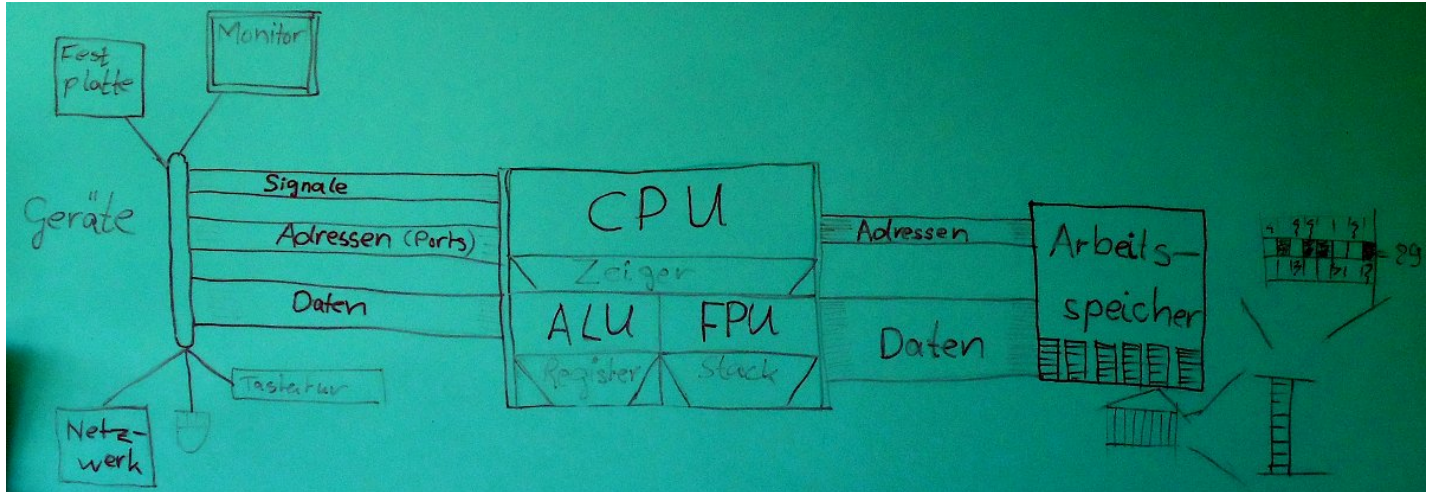 Fest
platte
Monitor
Geräte
Signale
Adressen (Ports)
Daten
Tastatur
Netz-
werk
CPU
Zeiger
ALU
FPU
Register
Stack
Adressen
Daten
Arbeits-
speicher
= 89